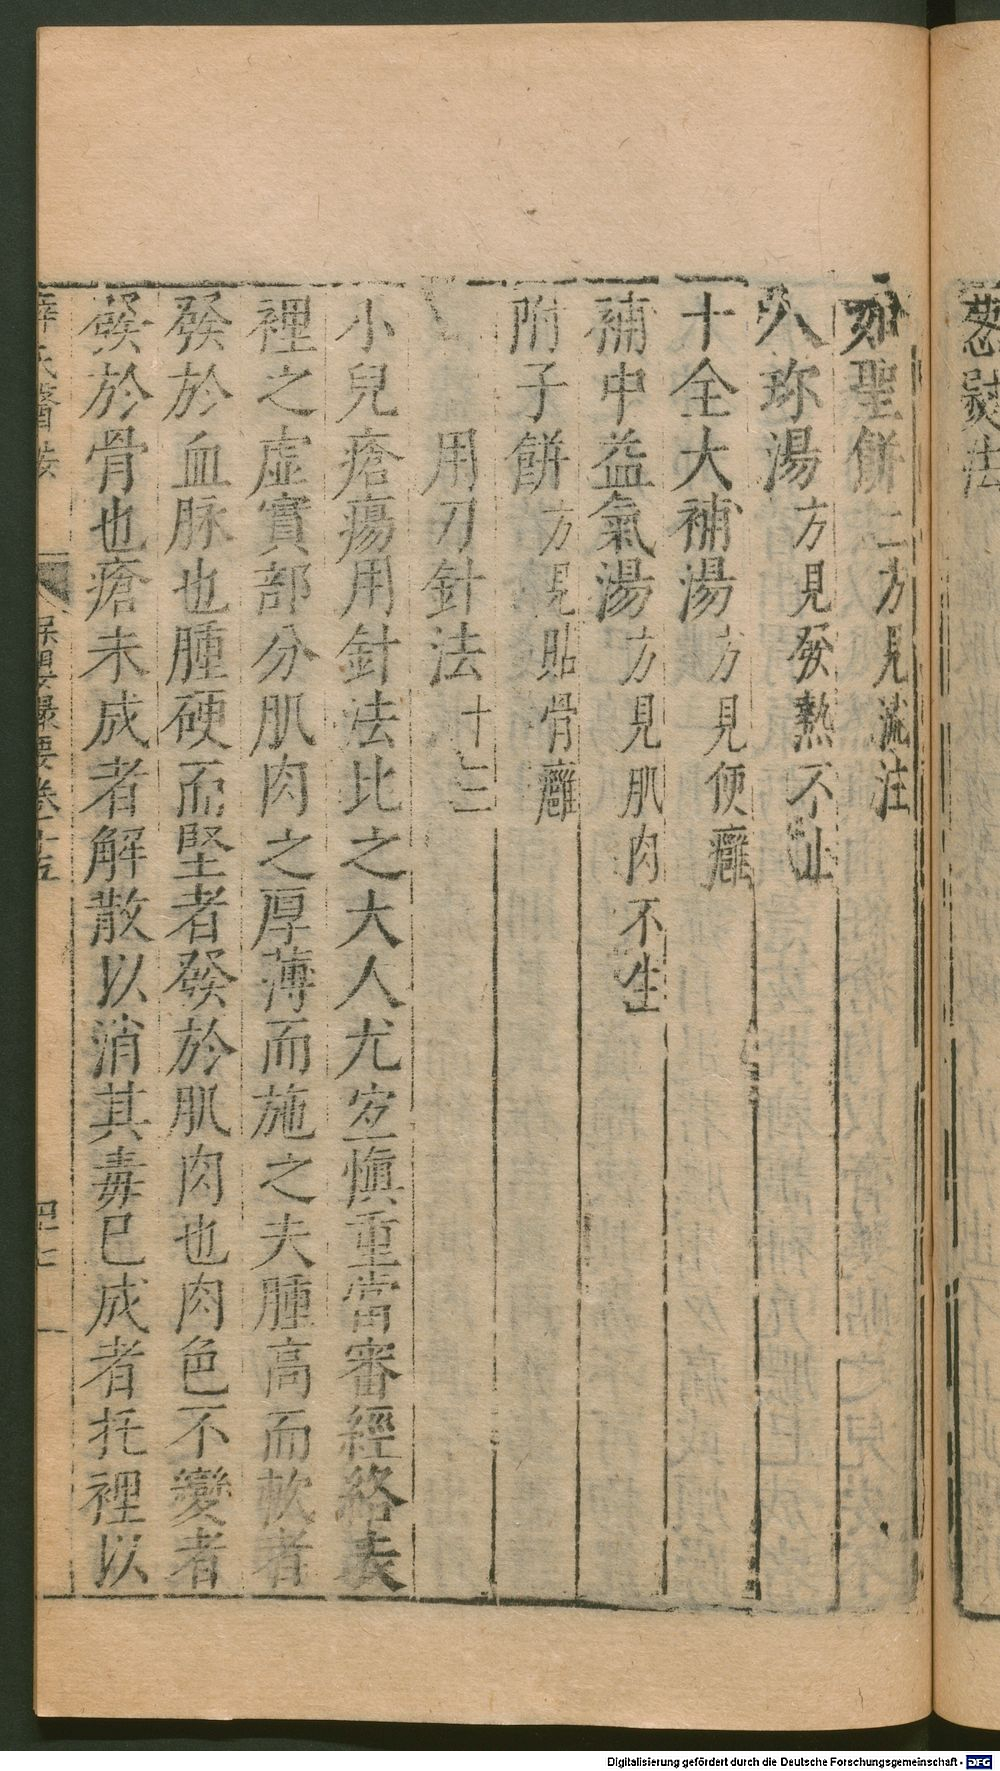 葱熨法
聖餅二方見流注
八珍湯方見發熱不止
十全大補湯方見便癰
補中益氣湯方見肌肉不生
附子餅方見貼骨癰
用刀針法十三
小兒瘡瘍用針法比之大人尤宐慎重當審經絡表
裡之虛實部分肌肉之厚薄而施之夫腫高而軟者
發於血脉也腫硬而堅者發於肌肉也肉色不變者
發於骨也瘡未成者解散以消其毒已成者托裡以
薛氏醫按 保嬰撮要卷十五 四七
Digitalisierung gefördert durch die Deutsche Forschungsgemeinschaft - DFG